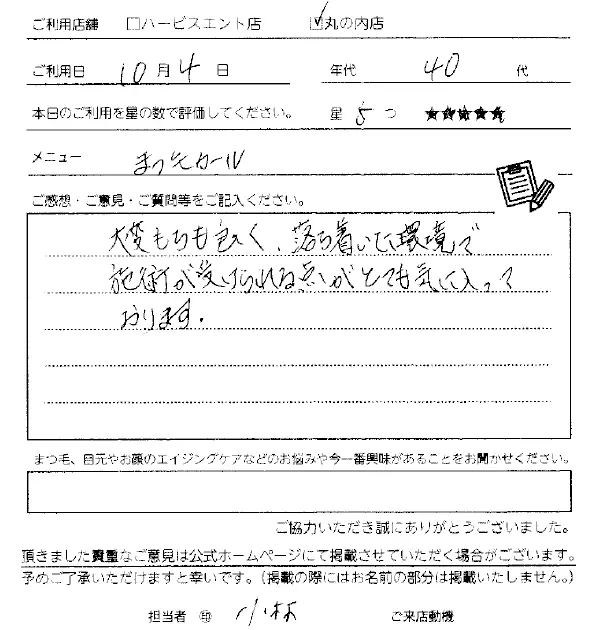 ご利用店舗 □ハービスエント店 ☑丸の内店
ご利用日 10月4日 年代 40代
本日のご利用を星の数で評価してください。 星5つ ★★★★★
メニュー まつ毛カール
ご感想・ご意見・ご質問等をご記入ください。
大変もちも良く、落ち着いた環境で
施術が受けられる点がとても気に入って
おります。
まつ毛、目元やお顔のエイジングケアなどのお悩みや今一番興味があることをお聞かせください。
ご協力いただき誠にありがとうございました。
頂きました貴重なご意見は公式ホームページにて掲載させていただく場合がございます。
予めご了承いただけますと幸いです。（掲載の際にはお名前の部分は掲載いたしません。）
担当者 ㊞ 小林 ご来店動機